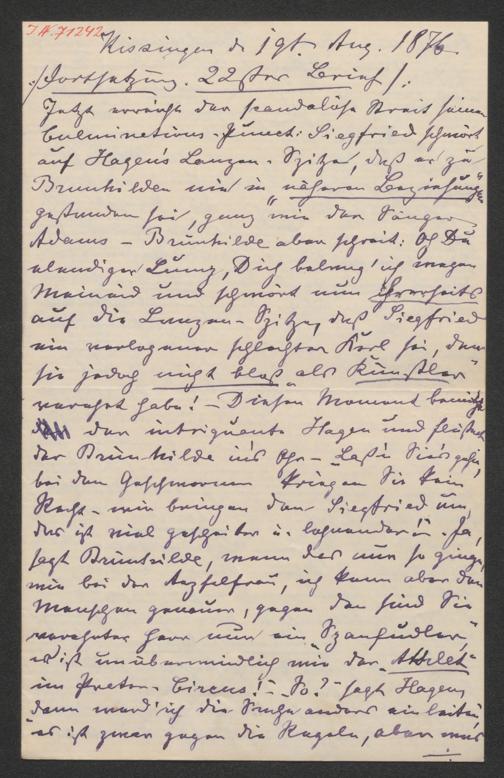 J.N. 71242
Kissingen d. 19t. Aug. 1876
/: Fortsetzung. 22ster Brief /:
Jetzt erreicht der scandalöse Streit seinen
Culminations-Punct: Siegfried schwört
auf Hagen's Lanzen-Spitze, daß er zu
Brunhilden nie in "näheren Beziehung"
gestanden sei, ganz wie der Sänger
Adams – Brünhilde aber schreit: Oh Du
elendiger Lump, Dich belang' ich wegen
Meineid und schwört nun ihrerseits
auf die Lanzen-Spitze, daß Siegfried
ein verlogener schlechter Kerl sei, den
sie jedoch nicht bloß als "Künstler"
verehrt habe! Diesen Moment benützt
der intriguante Hagen und flüstert
der Brünhilde in's Ohr – Laß'n Sie's geh'n,
bei den Geschwornen kriegen Sie kein
Recht – wir bringen den Siegfried um,
das ist viel gescheiter u. lohnender!" – Ja,
sagt Brünhilde, wenn das nur so ginge,
wie bei der, ich kenn aber den
Menschen genauer, gegen den sind Sie
verehrter Herr nur ein,
er ist unüberwindlich wie der "Athlet"
im Prater-Circus! – So?" sagt Hagen,
dann werd' ich die Sache anders einleiten,
"es ist zwar gegen die Regeln, aber was